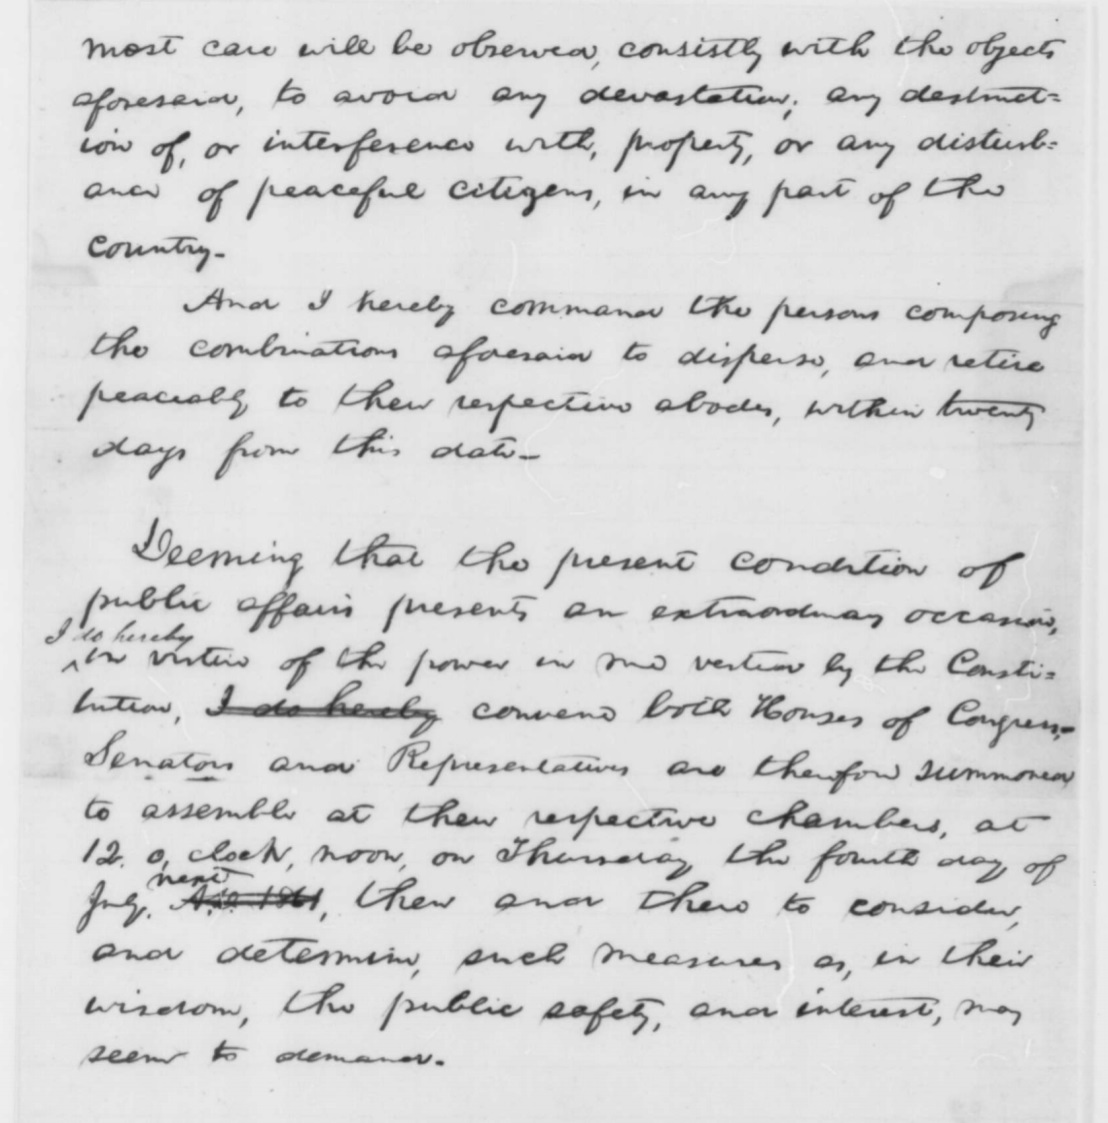 most care will be observed, consistly with the objects
aforesaid, to avoid any devastation, any destruct=
ion of, or interference with, property, or any disturb=
ance of peaceful citizens, in any part of the
country.
And I hereby command the persons composing
the combinations aforesaid to disperse, and retire
peaceably to their respective abodes, within twenty
days from this date—
Deeming that the present condition of
public affairs presents an extraordinary occasion,
I do hereby
in virtue of the power in me vested by the Consti=
tution, I do hereby convene both Houses of Congress,
Senators and Representatives are therefore summoned
to assemble at their respective chambers, at
12. o, clock, noon, on Thursday the fourth day of
next
July, A.D. 1861, then and there to consider,
and determine, such measures as, in their
wisdom, the public safety, and interest, may
seem to demand.